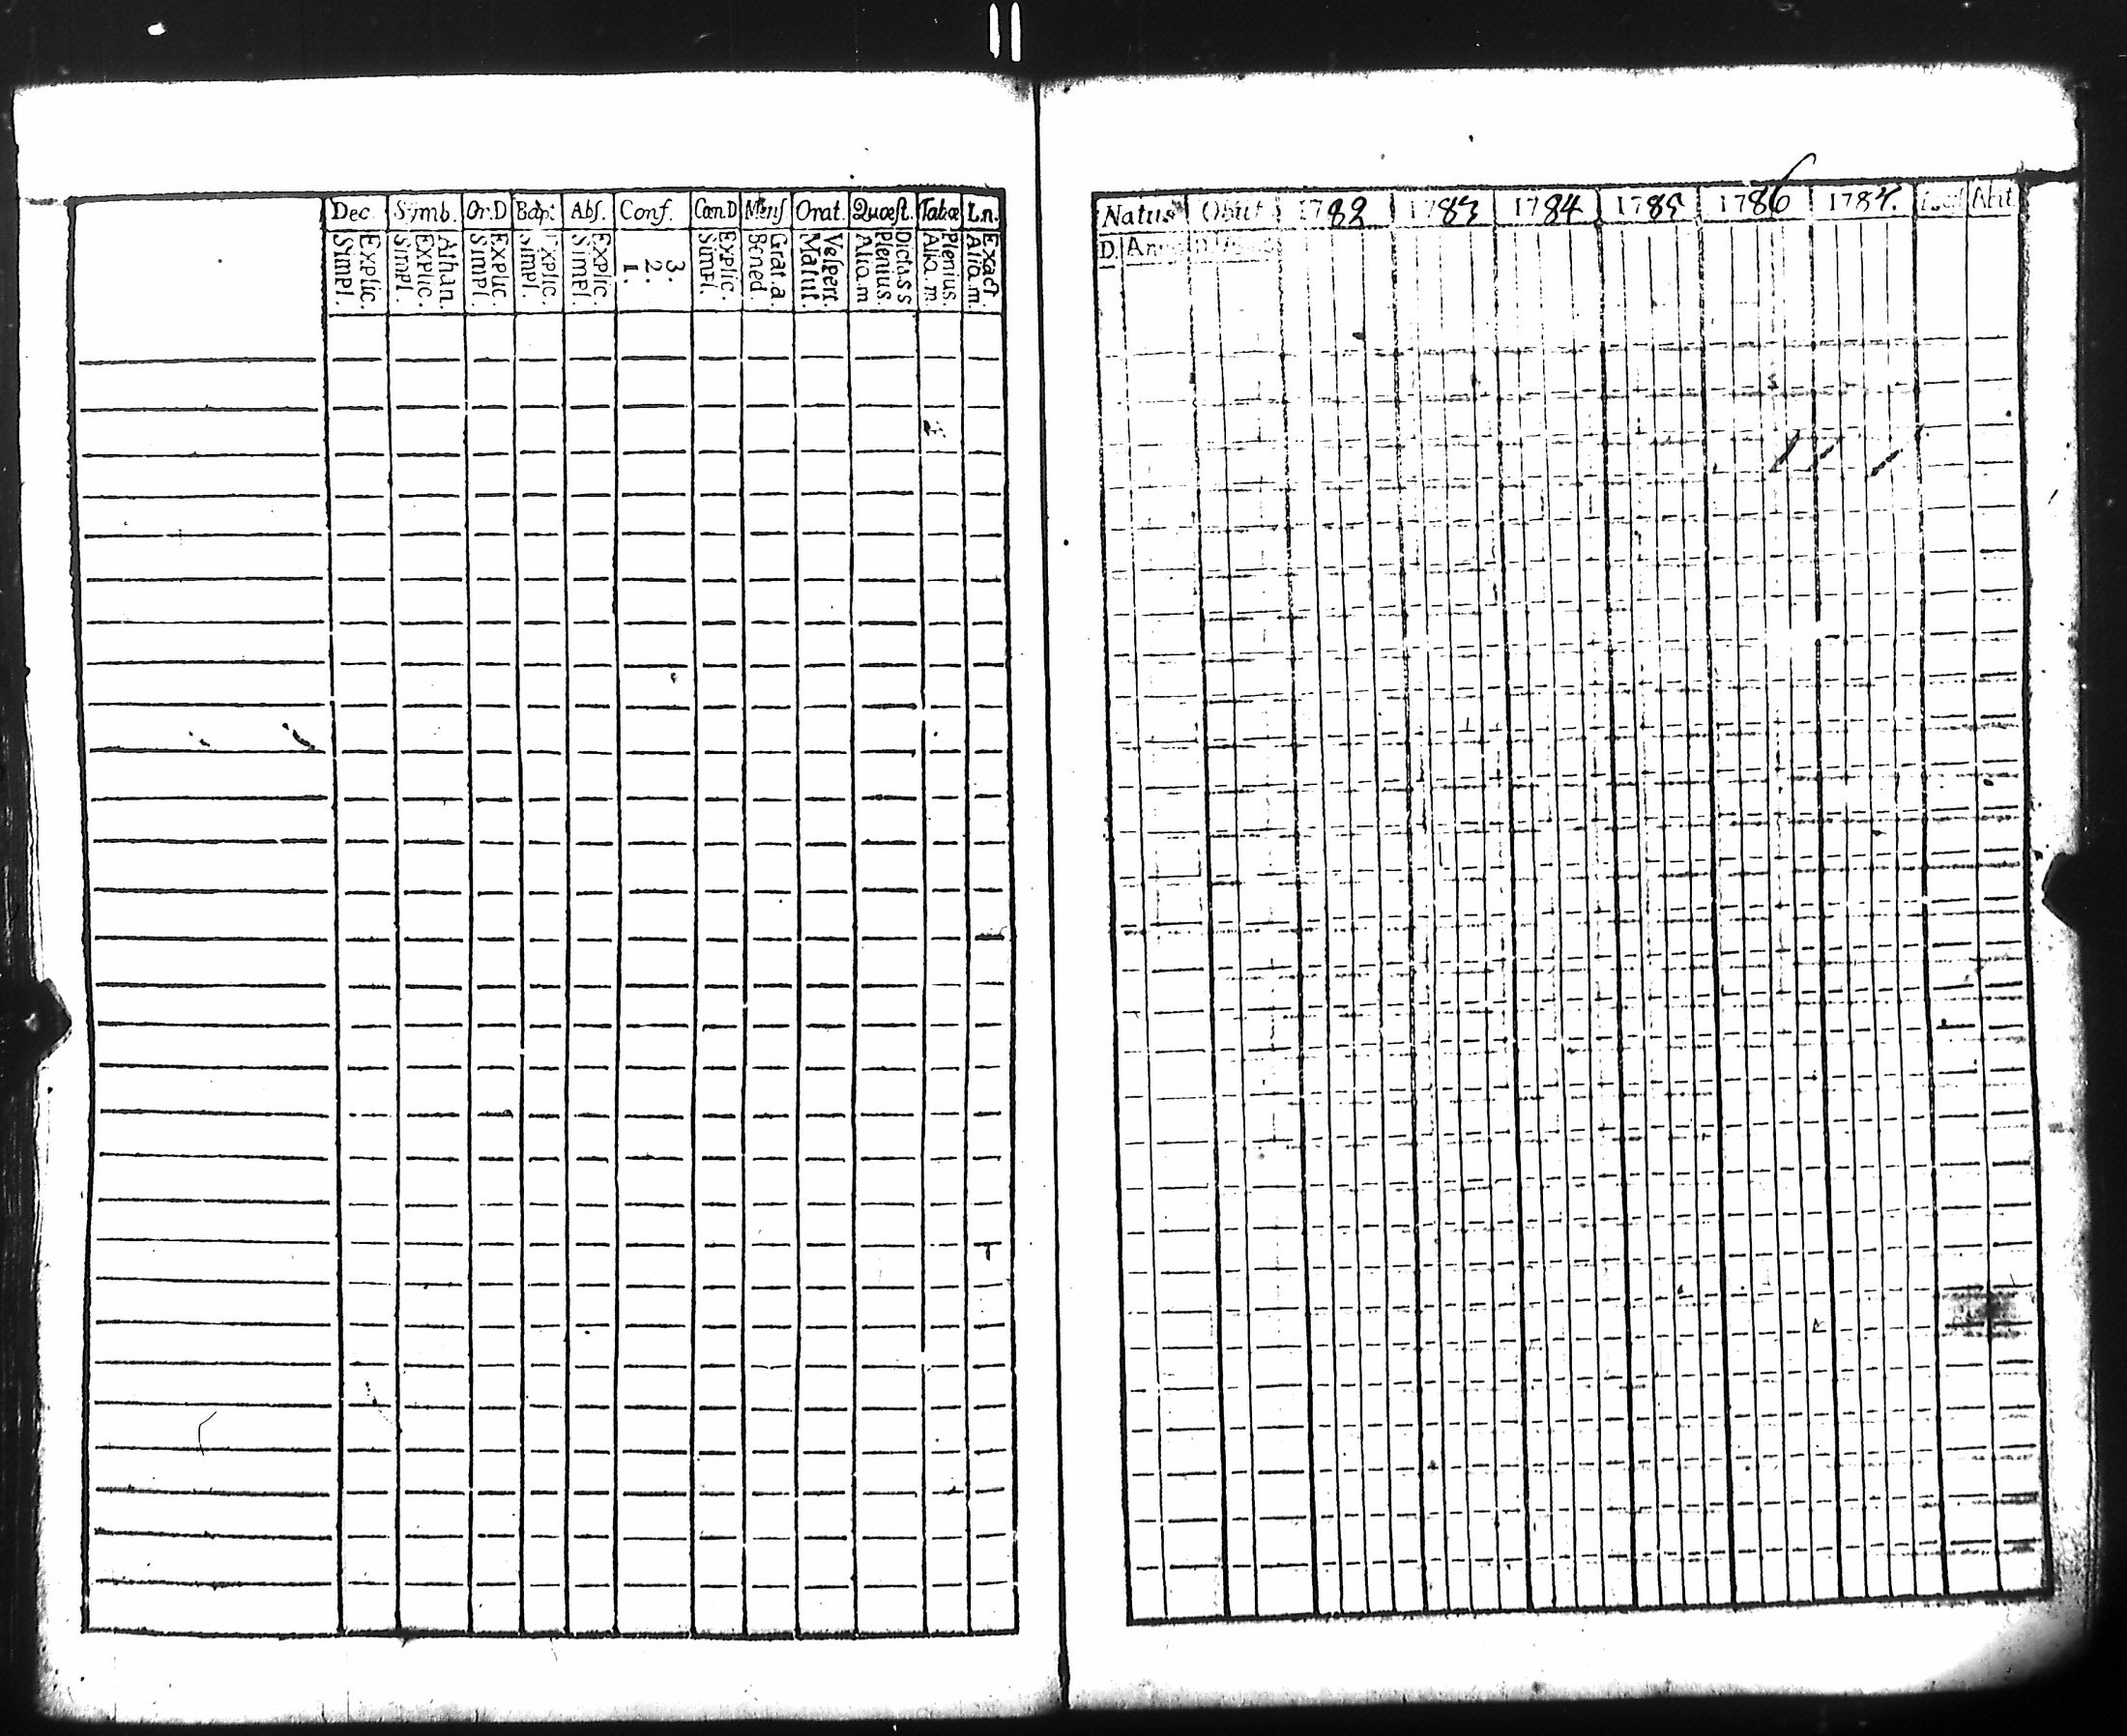 Dec. Symb. Or.D Bapt. Abs. Conf. Cœn.D Mens Orat. Quæst. Tabœ L.n.
Explic. Simpl. Athan. Explic. Simpl. Explic. Simpl. Explic. Simpl. Explic. Simpl. 3. 2. 1. Explic. Simpl. Grat.a Bened. Vespert. Matut. Dicta.s s Plenius. Alia.m Plenius. Alia.m. Exact. Alia.m.
Natus Obiit 1782 1783 1784 1785 1786 1787.
D. Ann